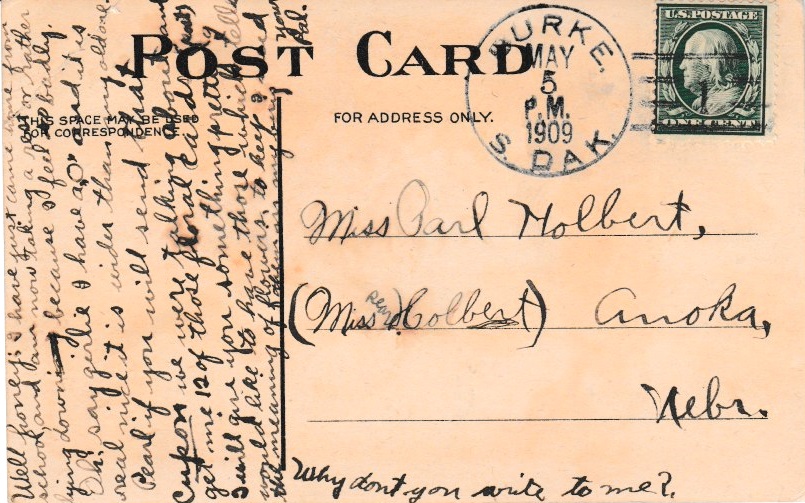 POST CARD
THIS SPACE MAY BE USED
FOR CORRESPONDENCE
FOR ADDRESS ONLY.
BURKE,
MAY
5
P.M.
1909
S. DAK.
U.S. POSTAGE
1
ONE CENT
Miss Parl Holbert,
(Miss Holbert) Anoka,
Nebr.
Why don't you write to me?
Well honey: I have just came from
school and am now taking a rest or rather
lying down because I feel so badly.
Oh! say girlie I have a and it is
real nice it is wider than my old one.
Pearl if you will send that
cupon we were talking about and
get me 12 of those floral cards
I will give you something pretty
would like to have those which tells
the meaning of flowers, to keep